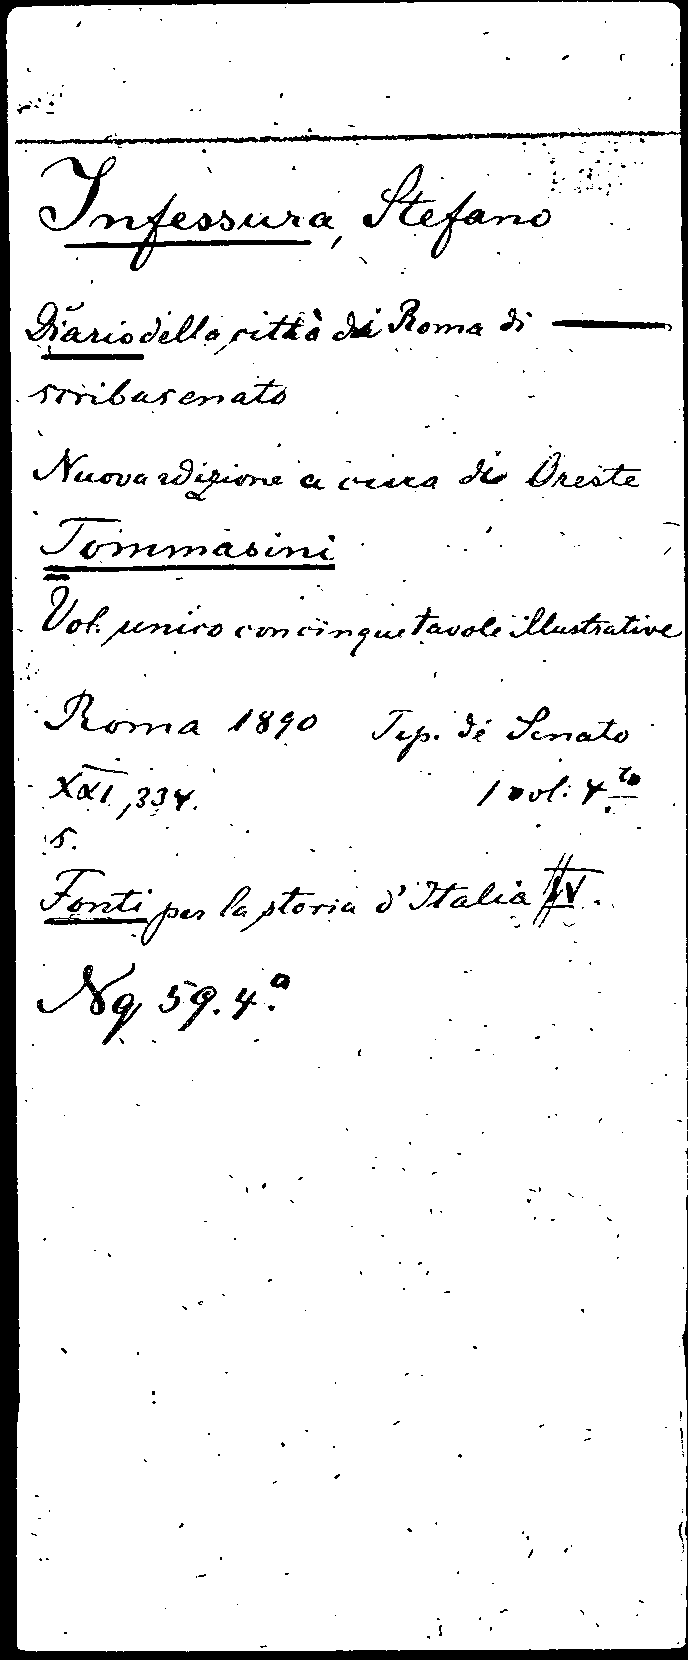 Infessura, Stefano
Diario della città di Roma di —
scribasenato
Nuova edizione a cura di Oreste
Tommasini
Vol. unico con cinque tavole illustrative
Roma 1890 Tip. de Senato
XXI, 334. 1 vol: 4to
5.
Fonti per la storia d'Italia IV.
Nq 59. 4.a